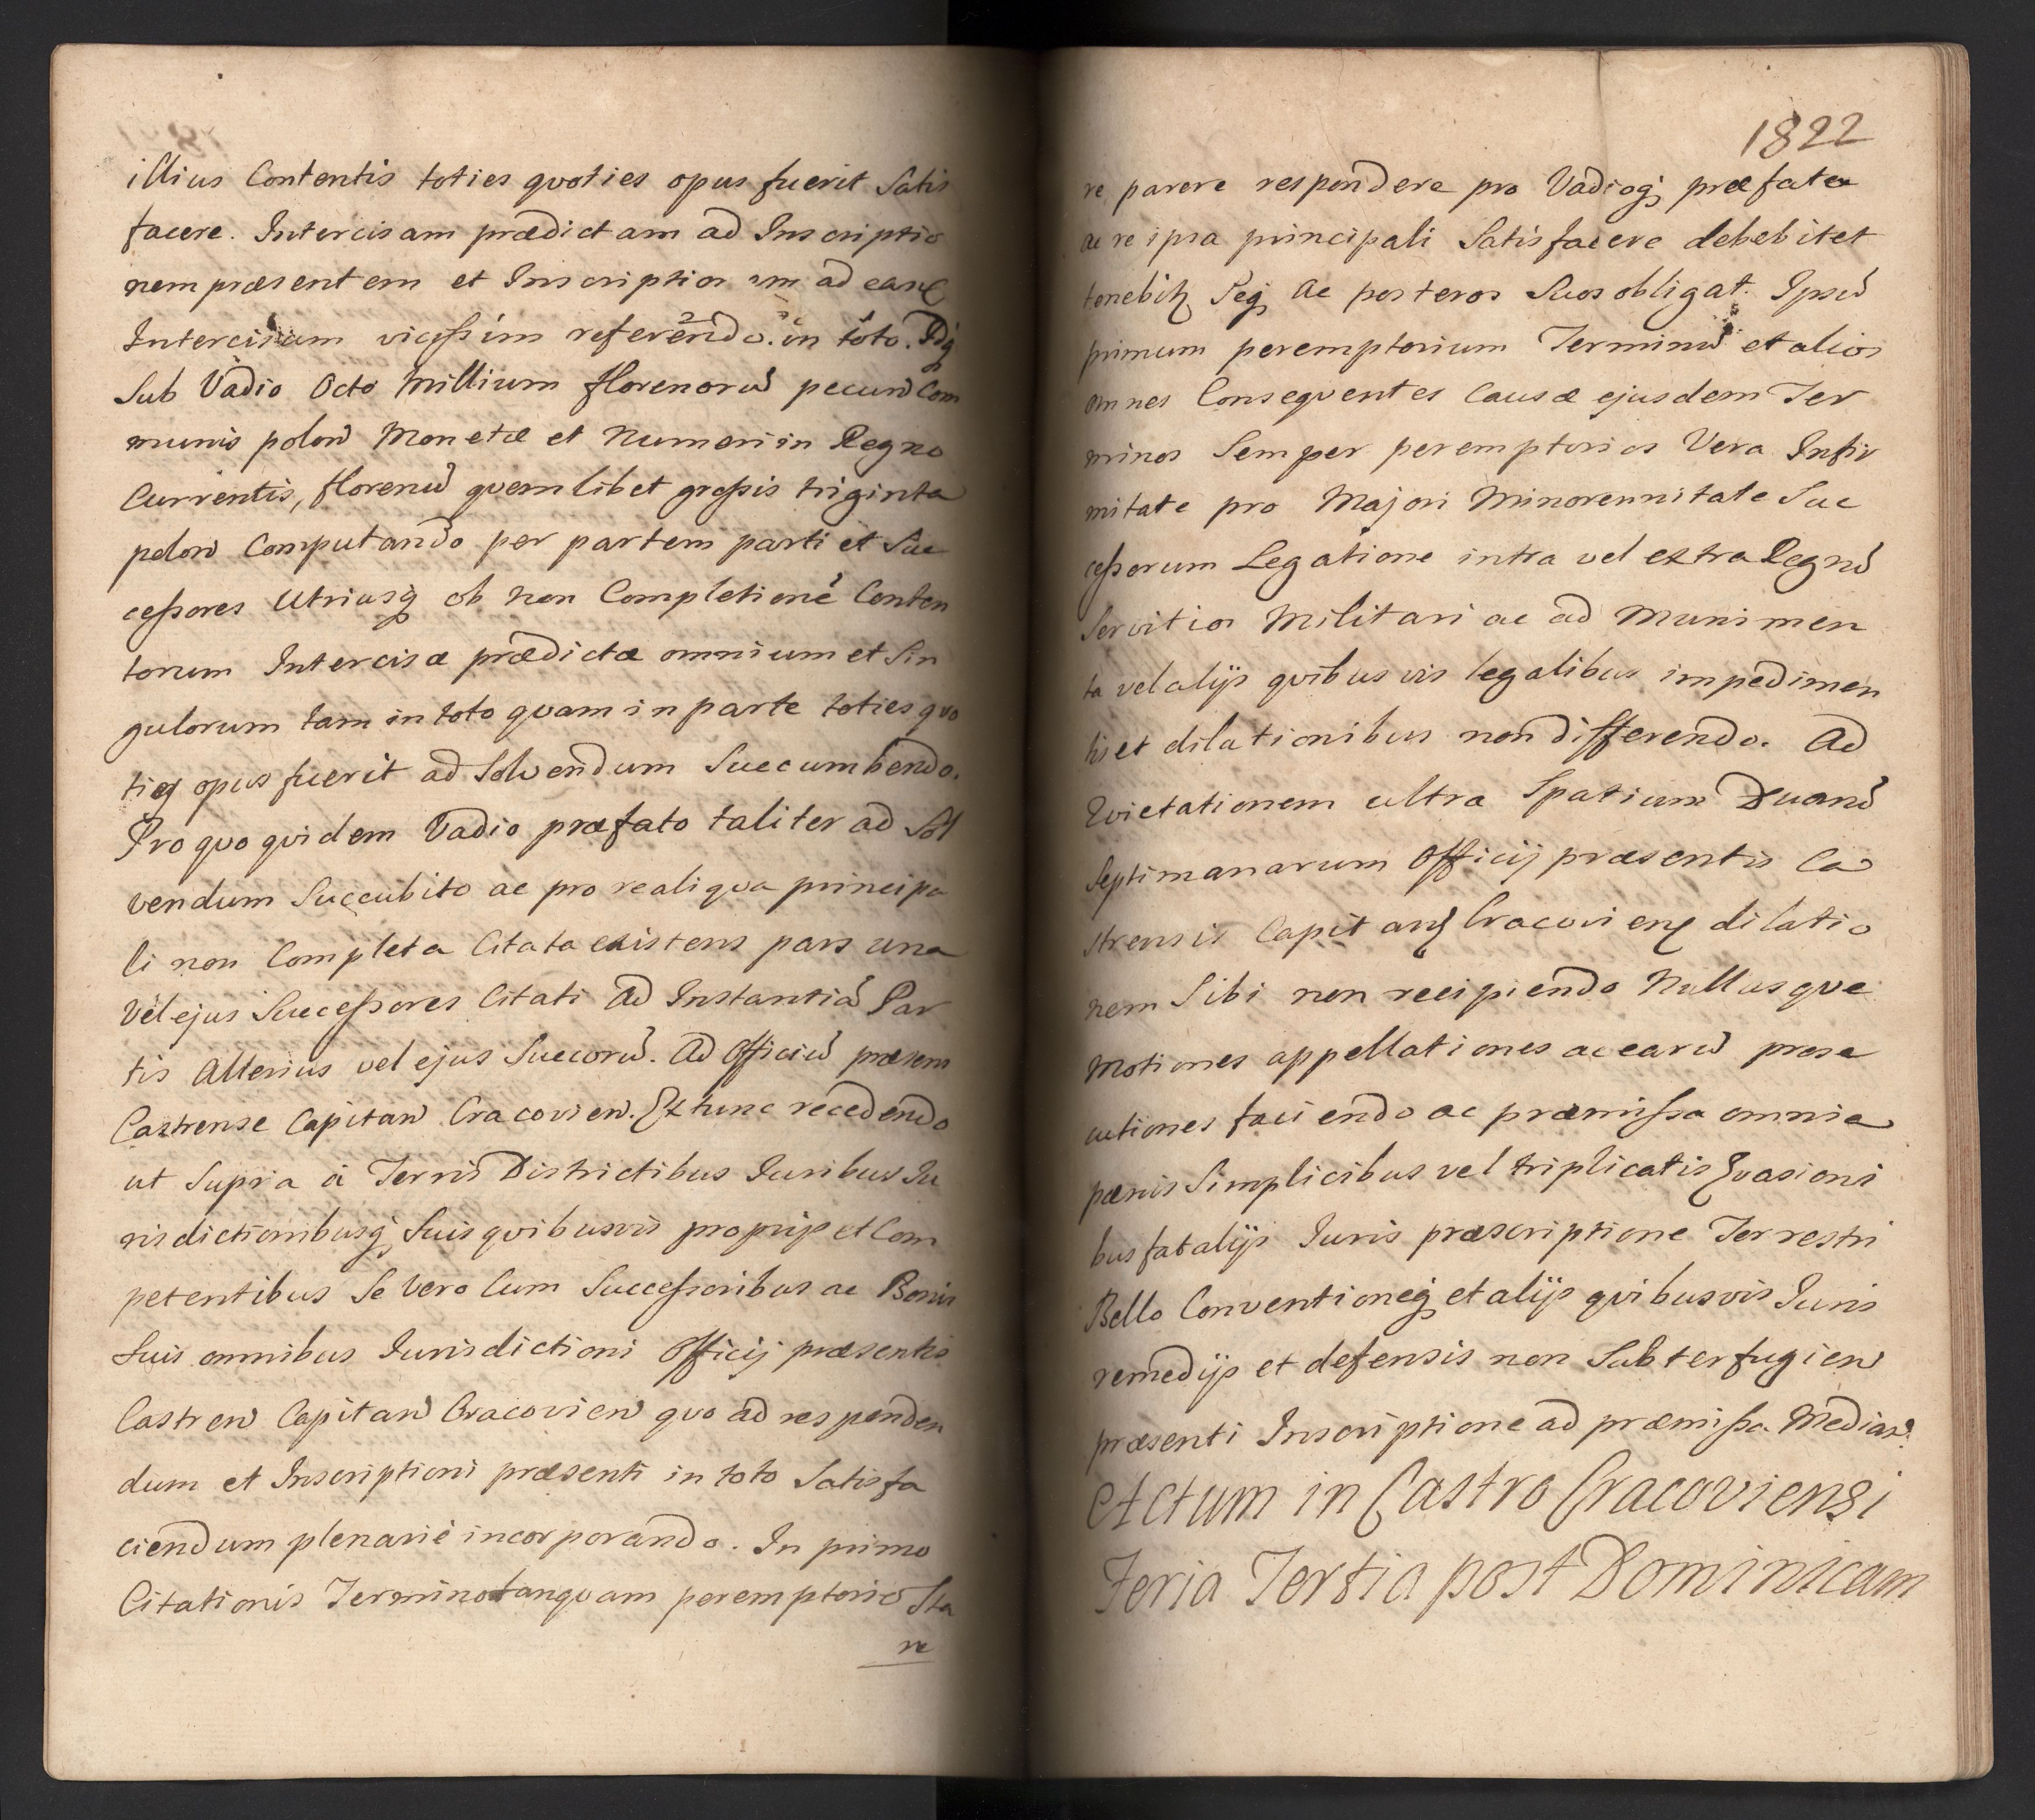 illius Contentis toties qvoties opus fuerit Satis
facere. Intercisam prædictam ad Inscriptio
nem præsentem et Inscriptionem ad eand
Intercisam vicissim referendo in toto. Idq
Sub Vadio Octo Millium florenorū pecun Com
munis polon Monetæ et Numeri in Regno
Currentis, florenū qvemlibet grossis triginta
polon Computando per partem parti et Suc
cessores Utriusq ob non Completionē Conten
torum Intercisæ prædictæ omnium et Sin
gulorum tam in toto qvam in parte toties qvo
ties opus fuerit ad Solvendum Succumbendo.
Pro qvo qvidem Vadio præfato taliter ad Sol
vendum Succubito ac pro re aliqva principa
li non Completa Citata existens pars una
Vel ejus Successores Citati Ad Instantiā Par
tis Alterius vel ejus Succorū. Ad Officiū præsens
Castrense Capitan Cracovien. Ex tunc recedendo
ut Supra à Terris Districtibus Iuribus Iu
risdictionibusq Suis qvibusvis proprijs et Com
petentibus Se Vero Cum Successoribus ac Bonis
Suis omnibus Iurisdictioni Officij præsentis
Castren Capitan Cracovien qvo ad responden
dum et Inscriptioni præsenti in toto Satisfa
ciendum plenarie incorporando. In primo
Citationis Termino tanqvam peremptorio Sta
re
1822
re parere respondere pro Vadioq præfato
ac re ipsa principali Satisfacere debebit et
tenebit Seq ac posteros Suos obligat. Ipsū
primum peremptorium Terminū et alios
omnes Conseqventes Causæ ejusdem Ter
minos Semper peremptorios Vera Infir
mitate pro Majori Minorennitate Suc
cessorum Legatione intra vel extra Regnū
Servitio Militari ac ad Munimen
ta vel alijs qvibusvis legalibus impedimen
tis et dilationibus non differendo. Ad
Qvietationem ultra Spatium Duarū
Septimanarum Officij præsentis Ca
strensis Capitan Cracovien dilatio
nem Sibi non recipiendo Nullasqve
Motiones appellationes ac earū prose
cutiones faciendo ac præmissa omnia
pænis Simplicibus vel triplicatis Evasioni
bus fatalijs Iuris præscriptione Terrestri
Bello Conventioneq et alijs qvibusvis Iuris
remedijs et defensis non Subterfugien
præsenti Inscriptione ad præmissa Median.
Actum in Castro Cracoviensi
Feria Tertia post Dominicam